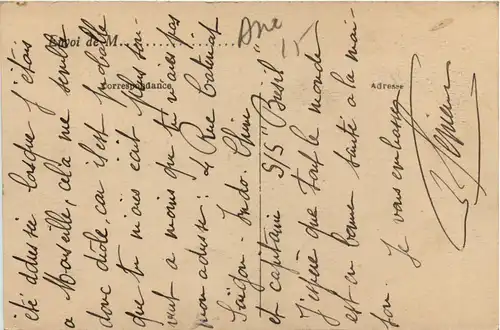 Envoi de M
Ane
15-
Correspondance
Adresse
été adressée lorsque j'étais
à Marseille, cela me semble
donc drôle, car il est probable
que tu m'aies écrit plus sou-
vent à moins que tu n'aies pas
mon adresse : 4 Rue Catinat
Saïgon. Indo. Chine
et capitaine S/S "Brésil"
J'espère que tout le monde
est en bonne santé à la mai-
son. Je vous embrasse